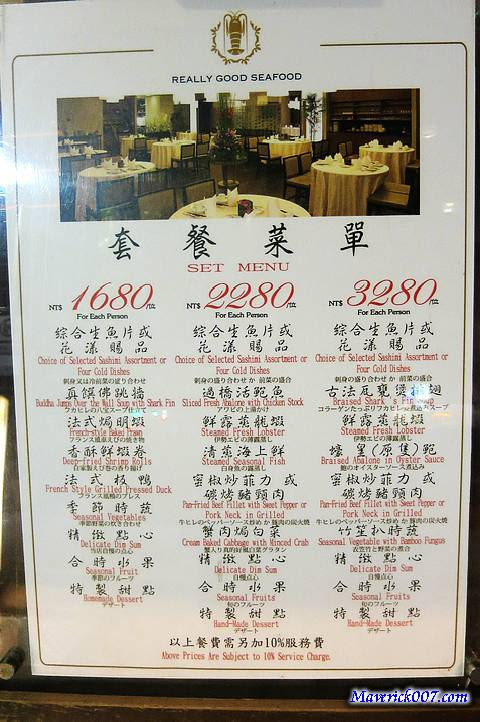 REALLY GOOD SEAFOOD
套餐菜單
SET MENU
NT$ 1680/位
For Each Person
綜合生魚片或
花漾賜品
Choice of Selected Sashimi Assortment or
Four Cold Dishes
刺身又は冷前菜の盛り合わせ
真饌佛跳牆
Buddha Jumps Over the Wall Soup with Shark Fin
フカヒレの八宝スープ仕立て
法式焗明蝦
French-style Baked Prawn
フランス風車えびの焼き物
香酥鮮蝦卷
Deep-fried Shrimp Rolls
自家製えび巻の香り揚げ
法式板鴨
French Style Grilled Pressed Duck
フランス風鴨のプレス
季節時蔬
Seasonal Vegetables
季節野菜の炊き合わせ
精緻點心
Delicate Dim Sum
当店自慢の点心
合時水果
Seasonal Fruit
季節のフルーツ
特製甜點
Homemade Dessert
デザート
NT$ 2280/位
For Each Person
綜合生魚片或
花漾賜品
Choice of Selected Sashimi Assortment or
Four Cold Dishes
刺身の盛り合わせ か 前菜の盛合
過橋活鮑魚
Sliced Fresh Abalone with Chicken Stock
アワビの上湯かけ
鮮露蒸龍蝦
Steamed Fresh Lobster
伊勢エビの薄露蒸し
清蒸海上鮮
Steamed Seasonal Fish
白身魚の露蒸し
蜜椒炒菲力 或
碳烤豬頸肉
Pan-Fried Beef Fillet with Sweet Pepper or
Pork Neck in Grilled
牛ヒレのペッパーソース炒め か 豚肉の炭火焼
蟹肉焗白菜
Cream Baked Cabbage with Minced Crab
蟹入り真的好風白菜グラタン
精緻點心
Delicate Dim Sum
自慢点心
合時水果
Seasonal Fruits
旬のフルーツ
特製甜點
Hand-Made Dessert
デザート
NT$ 3280/位
For Each Person
綜合生魚片或
花漾賜品
Choice of Selected Sashimi Assortment or
Four Cold Dishes
刺身の盛り合わせ か 前菜の盛合
古法瓦甕煲排翅
Braised Shark's Fin Soup
コラーゲンたっぷりフカヒレの煮込みスープ
鮮露蒸龍蝦
Steamed Fresh Lobster
伊勢エビの薄露蒸し
蠔皇(原隻)鮑
Braised Abalone in Oyster Sauce
鮑のオイスターソース煮込み
蜜椒炒菲力 或
碳烤豬頸肉
Pan-Fried Beef Fillet with Sweet Pepper or
Pork Neck in Grilled
牛ヒレのペッパーソース炒め か 豚肉の炭火焼
竹笙扒時蔬
Seasonal Vegetable with Bamboo Fungus
衣笠竹と野菜の煮合
精緻點心
Delicate Dim Sum
自慢点心
合時水果
Seasonal Fruits
旬のフルーツ
特製甜點
Hand-Made Dessert
デザート
以上餐費需另加10%服務費
Above Prices Are Subject to 10% Service Charge.
Maverick007.com